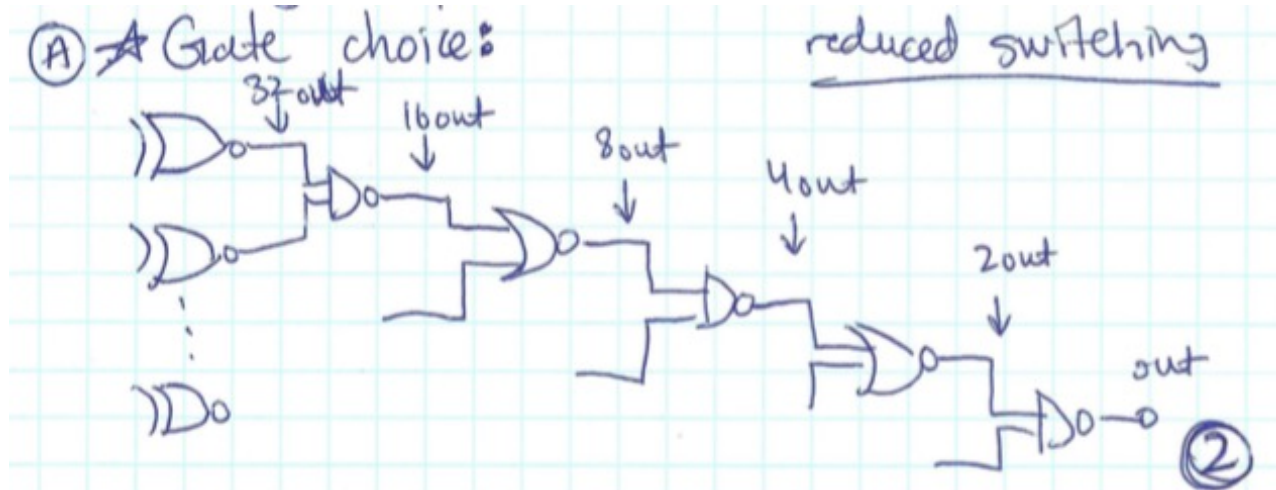 Ⓐ ★ Gate choice: reduced switching
32 out
16 out
8 out
4 out
2 out
out
②